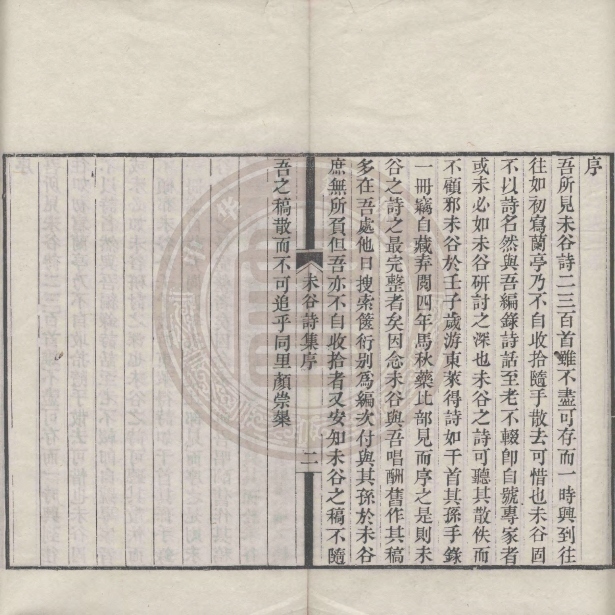 序
吾所見未谷詩二三百首雖不盡可存而一時興到往
往如初寫蘭亭乃不自收拾隨手散去可惜也未谷固
不以詩名然與吾編錄詩話至老不輟卽自號專家者
或未必如未谷研討之深也未谷之詩可聽其散佚而
不顧邪未谷於壬子歲游東萊得詩如干首其孫手錄
一冊竊自藏弆閱四年馬秋藥比部見而序之是則未
谷之詩之最完整者矣因念未谷與吾唱酬舊作其稿
多在吾處他日搜索篋衍别爲編次付與其孫於未谷
庶無所負但吾亦不自收拾者又安知未谷之稿不隨
吾之稿散而不可追乎同里顏崇槼
未谷詩集序
二